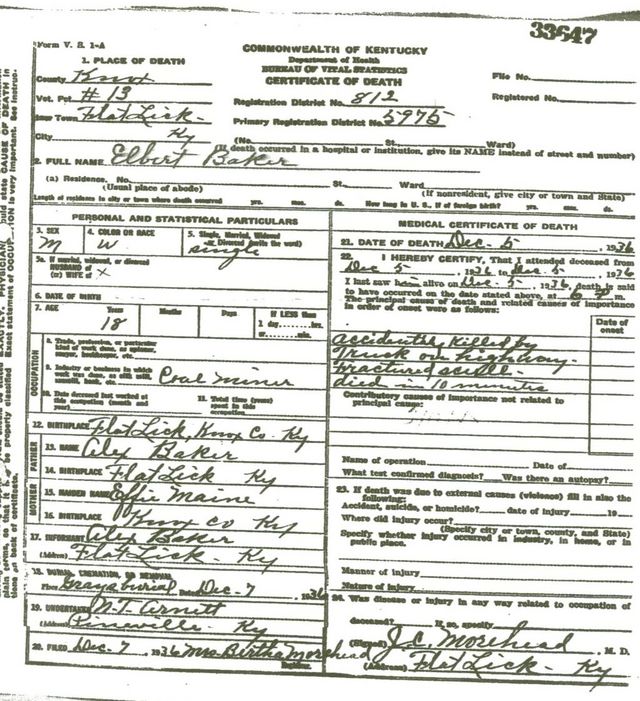 33647
Form V. S. 1-A
COMMONWEALTH OF KENTUCKY
Department of Health
BUREAU OF VITAL STATISTICS
CERTIFICATE OF DEATH
1. PLACE OF DEATH
County Knox
Vot. Pct # 13
Town Flat Lick -
City Ky
Registration District No. 812
Primary Registration District No. 5975
File No.
Registered No.
(No. St. Ward)
(If death occurred in a hospital or institution, give its NAME instead of street and number)
2. FULL NAME Elbert Baker
(a) Residence. No. St. Ward
(Usual place of abode) (If nonresident, give city or town and State)
Length of residence in city or town where death occurred yrs. mos. ds. How long in U. S., if of foreign birth? yrs. mos. ds.
PERSONAL AND STATISTICAL PARTICULARS
3. SEX M
4. COLOR OR RACE W
5. Single, Married, Widowed or Divorced (write the word) single
5a. If married, widowed, or divorced
HUSBAND of
(or) WIFE of x
6. DATE OF BIRTH
7. AGE Years Months Days If LESS than
18 1 day, hrs.
or min.
OCCUPATION
8. Trade, profession, or particular
kind of work done, as spinner,
sawyer, bookkeeper, etc.
9. Industry or business in which
work was done, as silk mill,
sawmill, bank, etc. Coal Miner
10. Date deceased last worked at
this occupation (month and
year)
11. Total time (years)
spent in this
occupation
12. BIRTHPLACE Flat Lick, Knox Co. Ky
FATHER
13. NAME Alex Baker
14. BIRTHPLACE Flat Lick Ky
MOTHER
15. MAIDEN NAME Effie Maine
16. BIRTHPLACE Knox Co Ky
17. INFORMANT Alex Baker
(Address) Flat Lick - Ky
18. BURIAL, CREMATION, OR REMOVAL
Place Grays burial Date Dec - 7, 1936
19. UNDERTAKER N.T. Arnett
(Address) Pineville - Ky
20. FILED Dec - 7, 1936 Mrs Bertha Morehead
MEDICAL CERTIFICATE OF DEATH
21. DATE OF DEATH Dec - 5, 1936
22. I HEREBY CERTIFY, That I attended deceased from
Dec 5, 1936 to Dec 5, 1936
I last saw alive on Dec 5, 1936, death is said
to have occurred on the date stated above, at m.
The principal cause of death and related causes of importance
in order of onset were as follows:
Date of
onset
accidently killed by
Truck on highway -
Fractured scull -
died in 10 minutes
Contributory causes of importance not related to
principal cause:
Name of operation Date of
What test confirmed diagnosis? Was there an autopsy?
23. If death was due to external causes (violence) fill in also the
following:
Accident, suicide, or homicide? date of injury 19
Where did injury occur?
(Specify city or town, county, and State)
Specify whether injury occurred in industry, in home, or in
public place.
Manner of injury
Nature of injury
24. Was disease or injury in any way related to occupation of
deceased? If so, specify
(Signed) J. C. Morehead, M. D.
(Address) Flat Lick - Ky